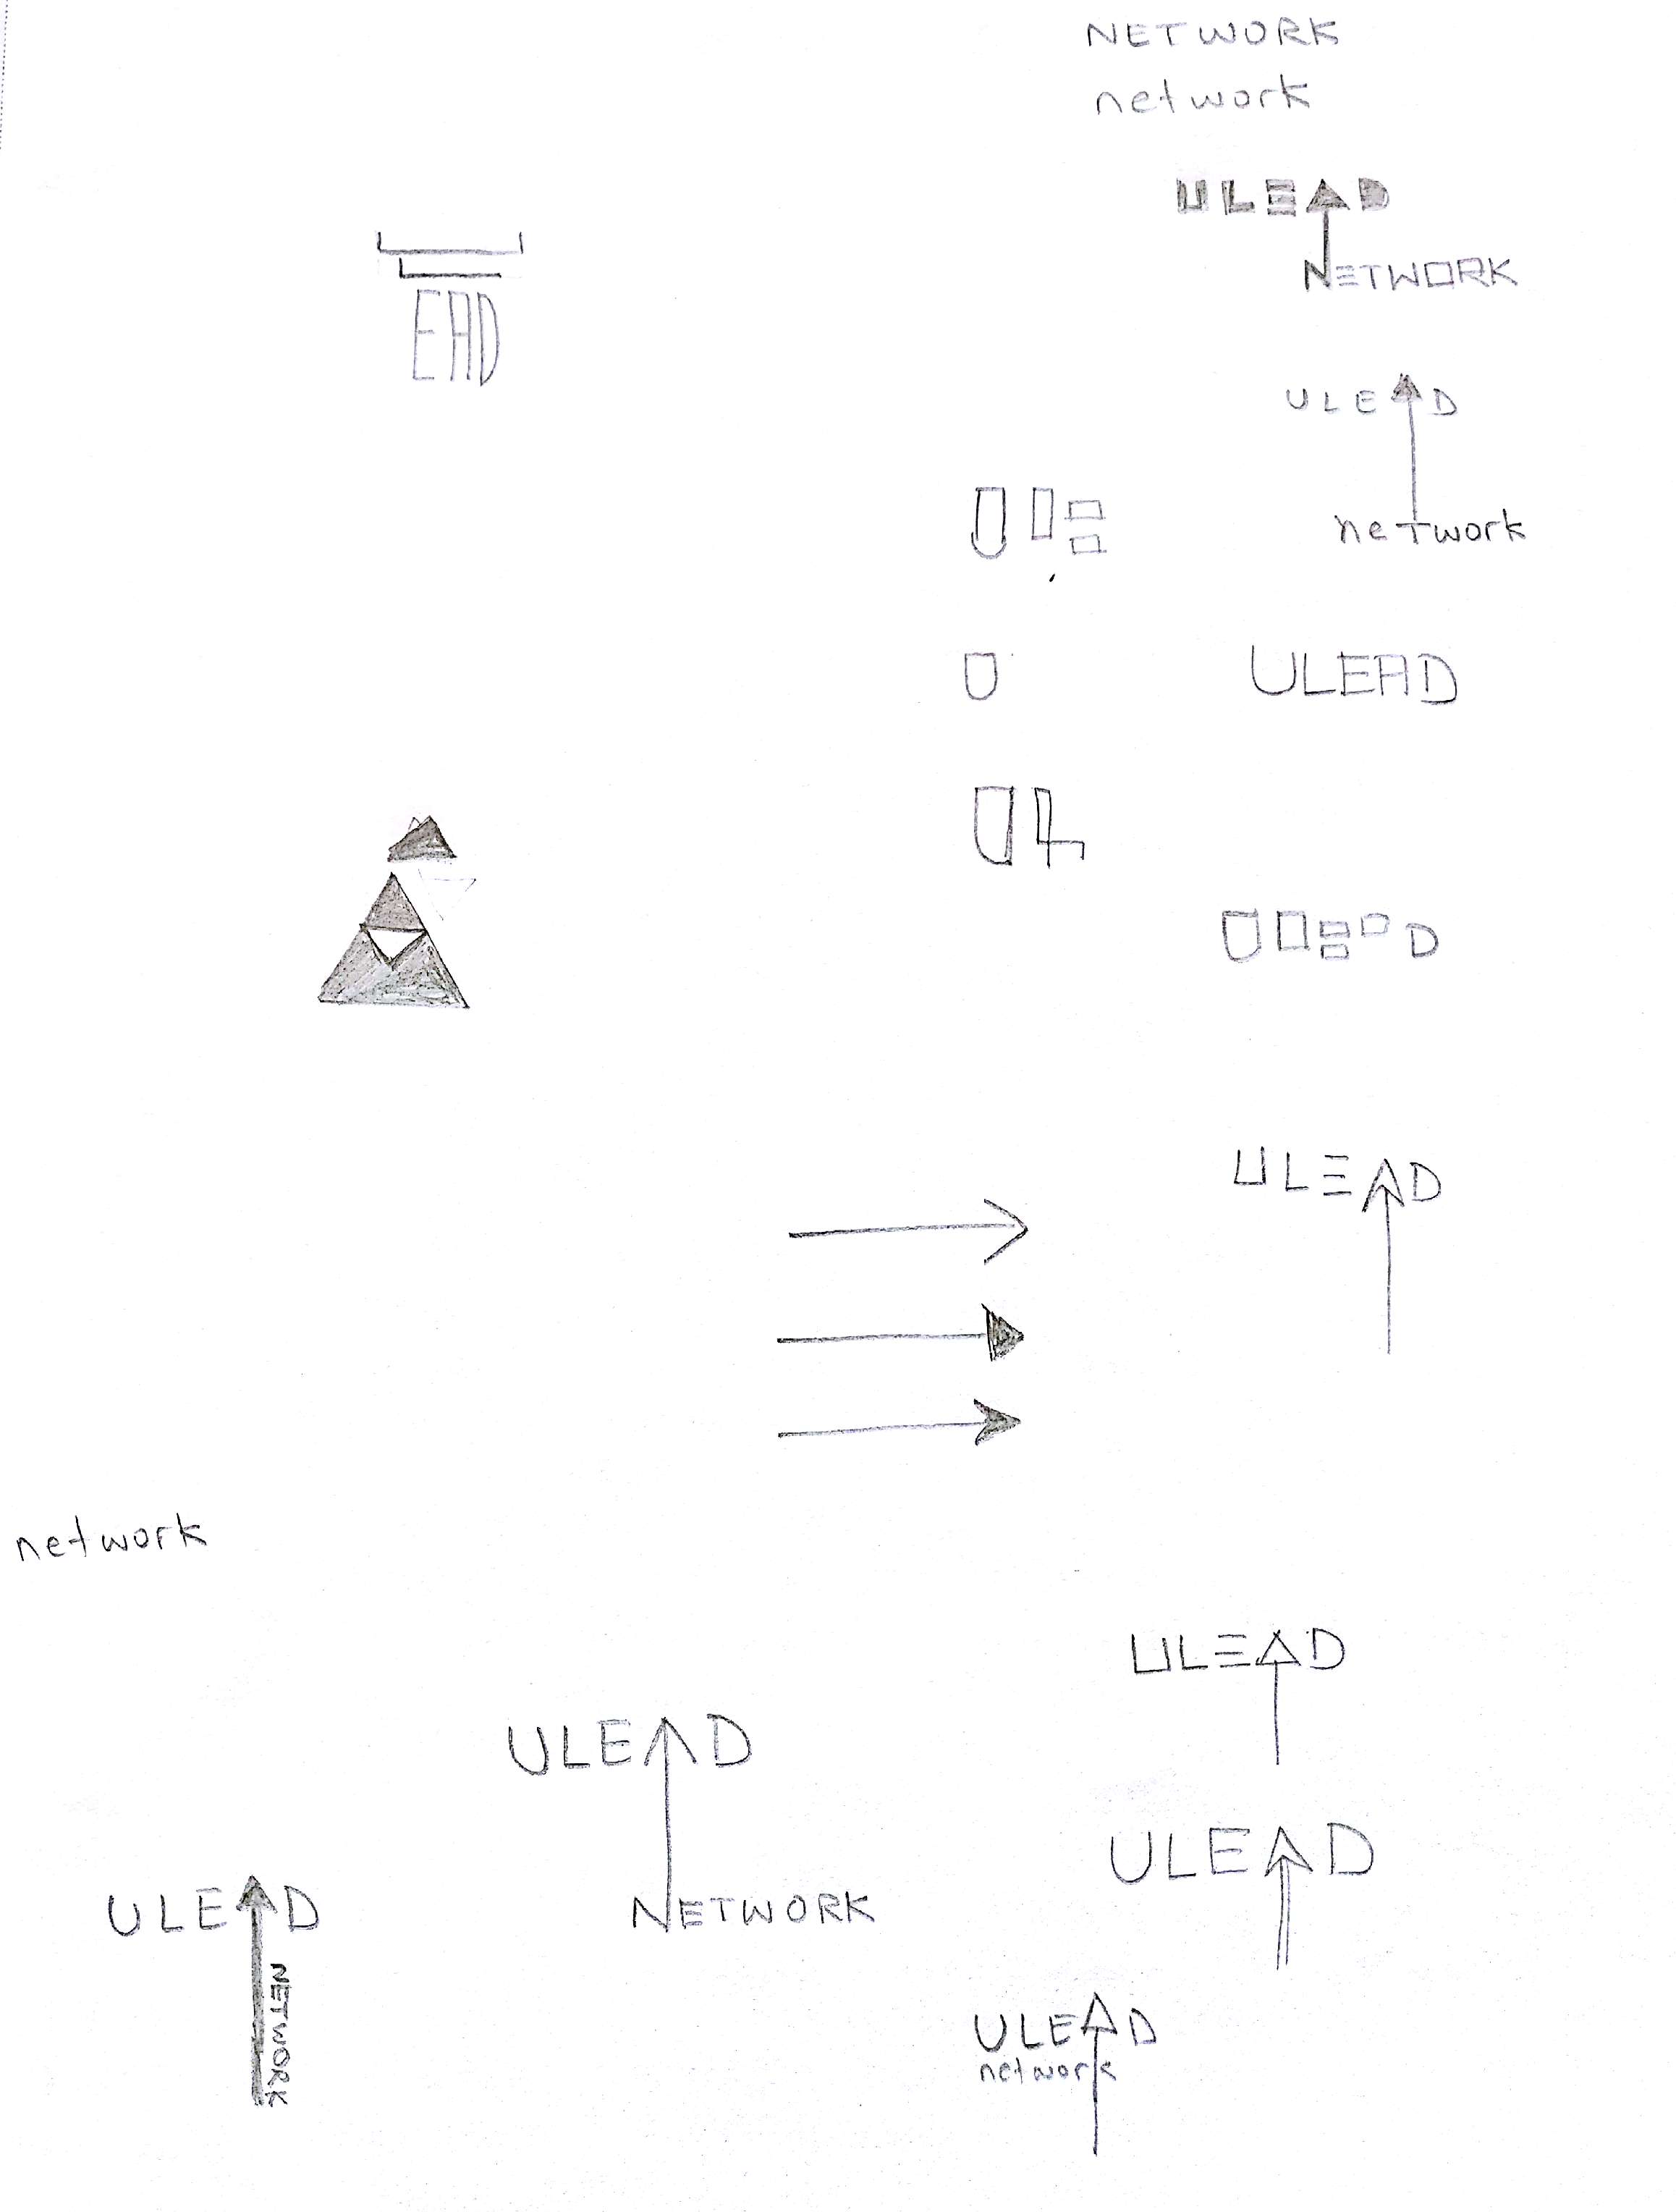 NETWORK
network
ULEAD
NETWORK
EAD
ULEAD
network
ULEAD
ULEAD
network
ULEAD
ULEAD
NETWORK
ULEAD
ULEAD
NETWORK
ULEAD
network